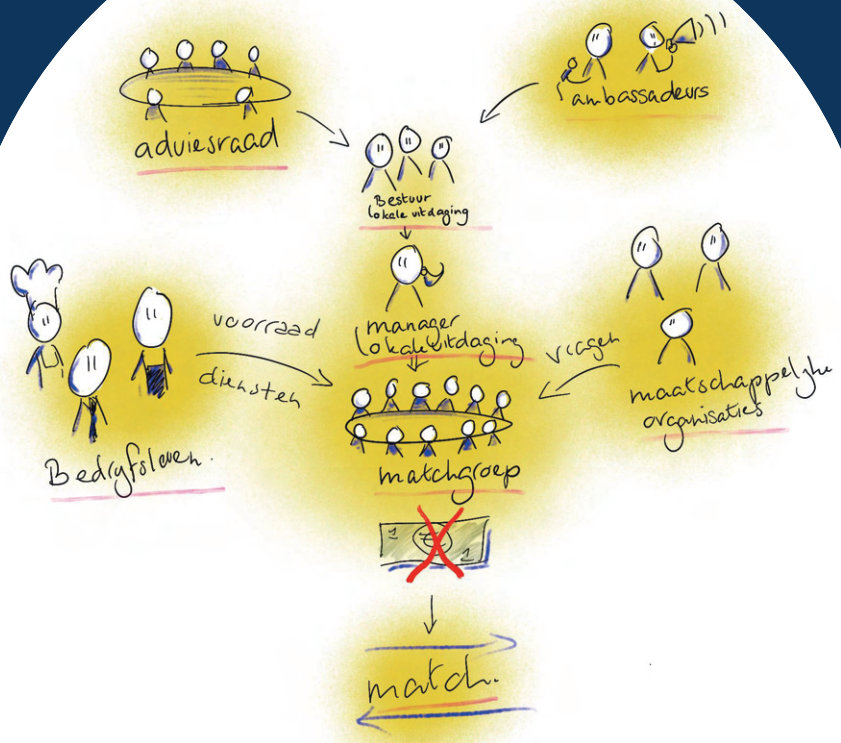 adviesraad
ambassadeurs
Bestuur
lokale uitdaging
manager
lokale uitdaging
voorraad
diensten
vragen
Bedrijfsleven.
maatschappelijke
organisaties
matchgroep
1 € 1
match.